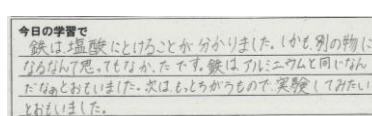 今日の学習で
鉄は、塩酸にとけることが分かりました。しかも、別の物に
なるなんて思ってもなかったです。鉄は、アルミニウムと同じなん
だなぁとおもいました。次は、もっとちがうもので、実験してみたい
とおもいました。